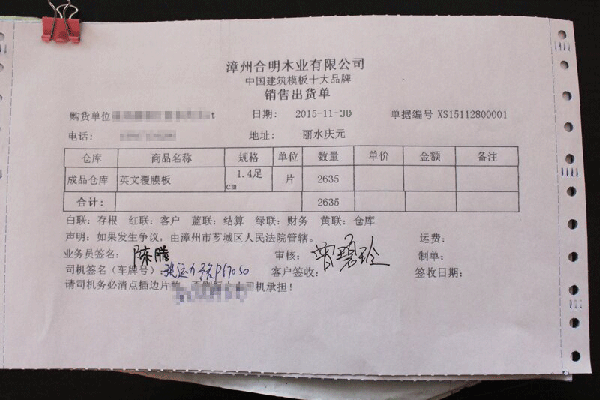 漳州合明木业有限公司
中国建筑模板十大品牌
销售出货单
购货单位 日期: 2015-11-30 单据编号 XS15112800001
电话: 地址: 丽水庆元
仓库 商品名称 规格 单位 数量 单价 金额 备注
成品仓库 英文覆膜板 1.4足cm 片 2635
合计: 2635
白联: 存根 红联: 客户 蓝联: 结算 绿联: 财务 黄联: 仓库
声明: 如果发生争议, 由漳州市芗城区人民法院管辖。 运费:
业务员签名: 陈腾 审核: 曾碧玲 制单:
司机签名(车牌号) 客户签收: 签收日期:
请司机务必清点插边片数 司机承担!